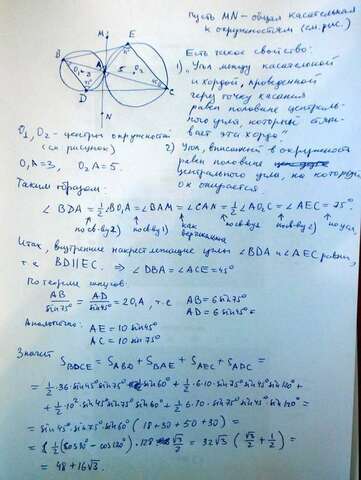 Пусть MN - общая касательная
к окружностям (см. рис.)
Есть такое свойство:
1) "Угол между касательной
и хордой, проведенной
через точку касания
равен половине централь-
ного угла, который стяги-
вает эта хорда"
2) Угол, вписанный в окружность
равен половине
центрального угла, на который
он опирается.
M
E
B
A
O₁
3
5
O₂
D
C
N
O₁, O₂ - центры окружностей
(см рисунок)
O₁A=3, O₂A=5.
Таким образом:
∠BDA = 1/2 ∠BO₁A = ∠BAM = ∠CAN = 1/2 ∠AO₂C = ∠AEC = 75°.
по св-ву 2) по св-ву 1) как вертикальные по св-ву 1) по св-ву 2) по усл.
Итак, внутренние накрест лежащие углы ∠BDA и ∠AEC равны,
т.к BD||EC. ⇒ ∠DBA = ∠ACE = 45°
По теореме синусов:
AB/sin75° = AD/sin45° = 2O₁A, т.е AB = 6 sin75°
AD = 6 sin45°
Аналогично: AE = 10 sin45°
AC = 10 sin75°
Значит S_BDCE = S_ABD + S_BAE + S_AEC + S_ADC =
= 1/2 · 36 · sin45° sin75° sin60° + 1/2 · 6 · 10 · sin75° sin45° sin120° +
+ 1/2 · 10² · sin45° sin75° sin60° + 1/2 · 6 · 10 · sin75° sin45° sin120° =
= sin45° · sin75° · sin60° (18 + 30 + 50 + 30) =
= 1/2 (cos30° - cos120°) · 128 · √3/2 = 32√3 (√3/2 + 1/2) =
= 48 + 16√3.